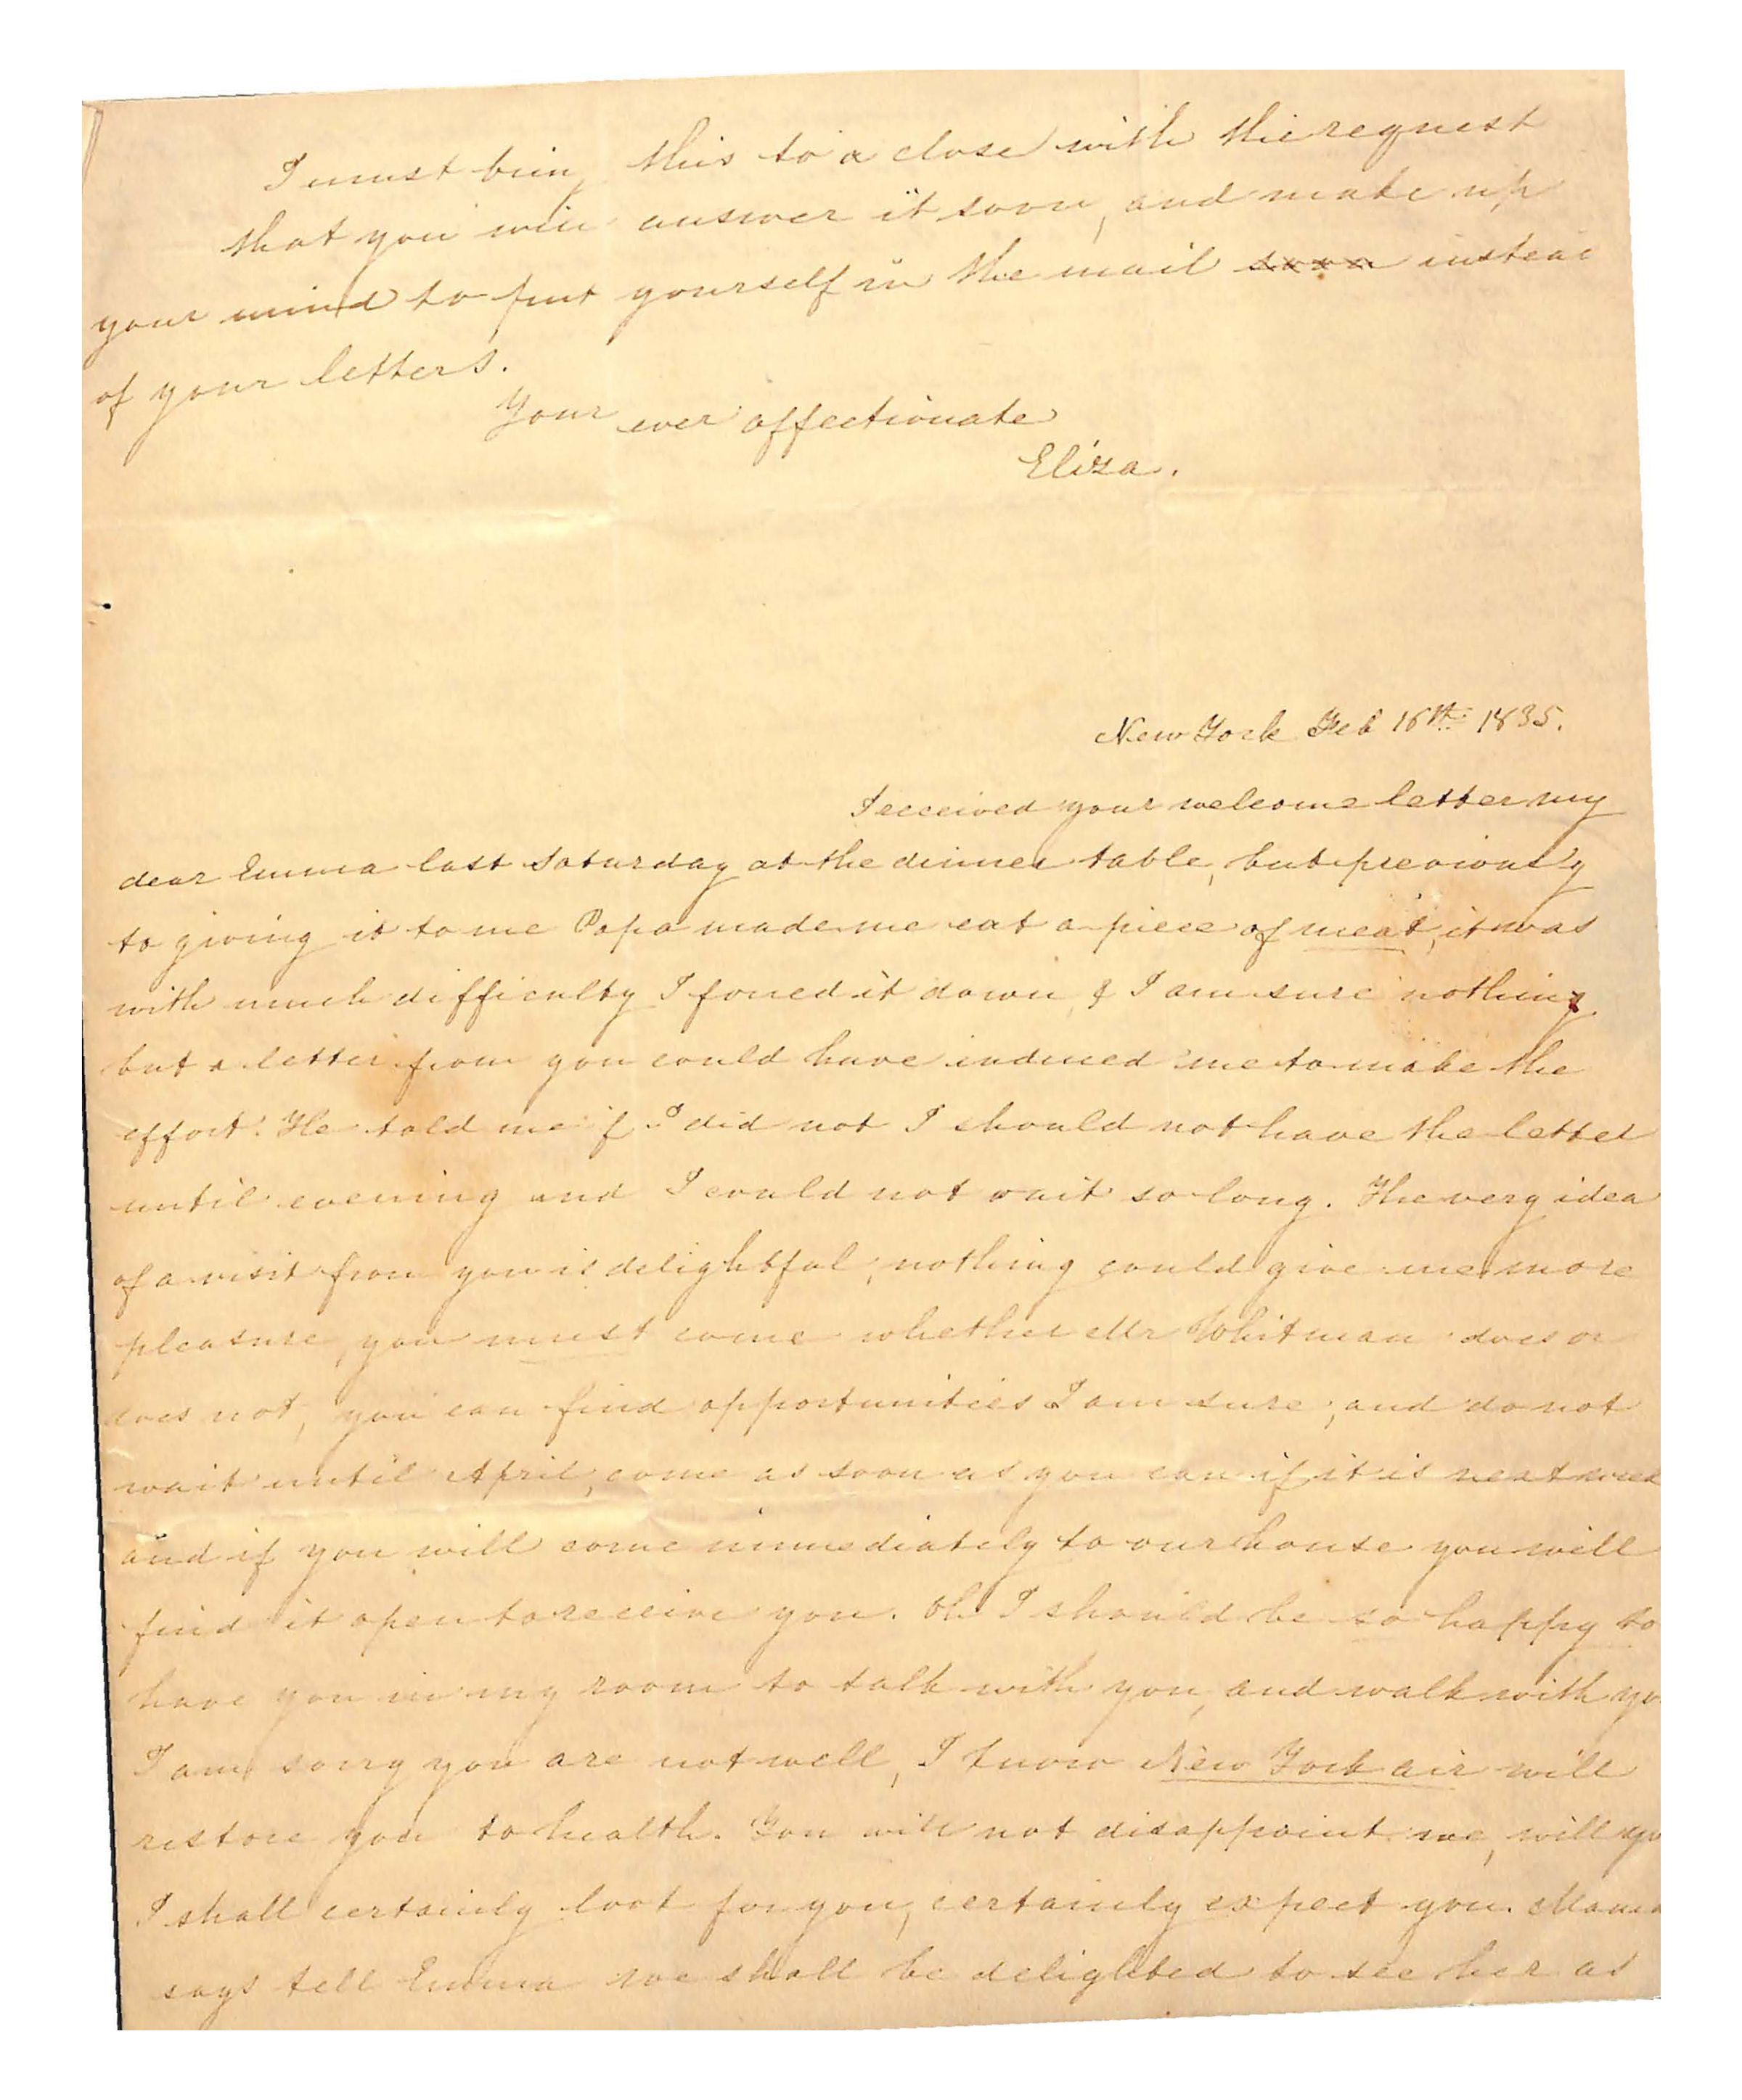 I must bring this to a close with the request
that you will answer it soon, and make up
your mind to put yourself in the mail soon instead
of your letters.
Your ever affectionate
Eliza.
New York Feb 16th 1835.
I received your welcome letter my
dear Emma last Saturday at the dinner table, but previously
to giving it to me Papa made me eat a piece of meat, it was
with much difficulty I forced it down & I am sure nothing
but a letter from you could have induced me to make the
effort. He told me if I did not I should not have the letter
until evening and I could not wait so long. The very idea
of a visit from you is delightful, nothing could give me more
pleasure, you must come whether Mr Whitman does or
does not, you can find opportunities I am sure, and do not
wait until April, come as soon as you can if it is next week
and if you will come immediately to our house you will
find it open to receive you. Oh I should be so happy to
have you in my room to talk with you, and walk with yo
I am sorry you are not well, I know New York air will
restore you to health. You will not disappoint me, will yo
I shall certainly look for you, certainly expect you. Mama
says tell Emma we shall be delighted to see her as